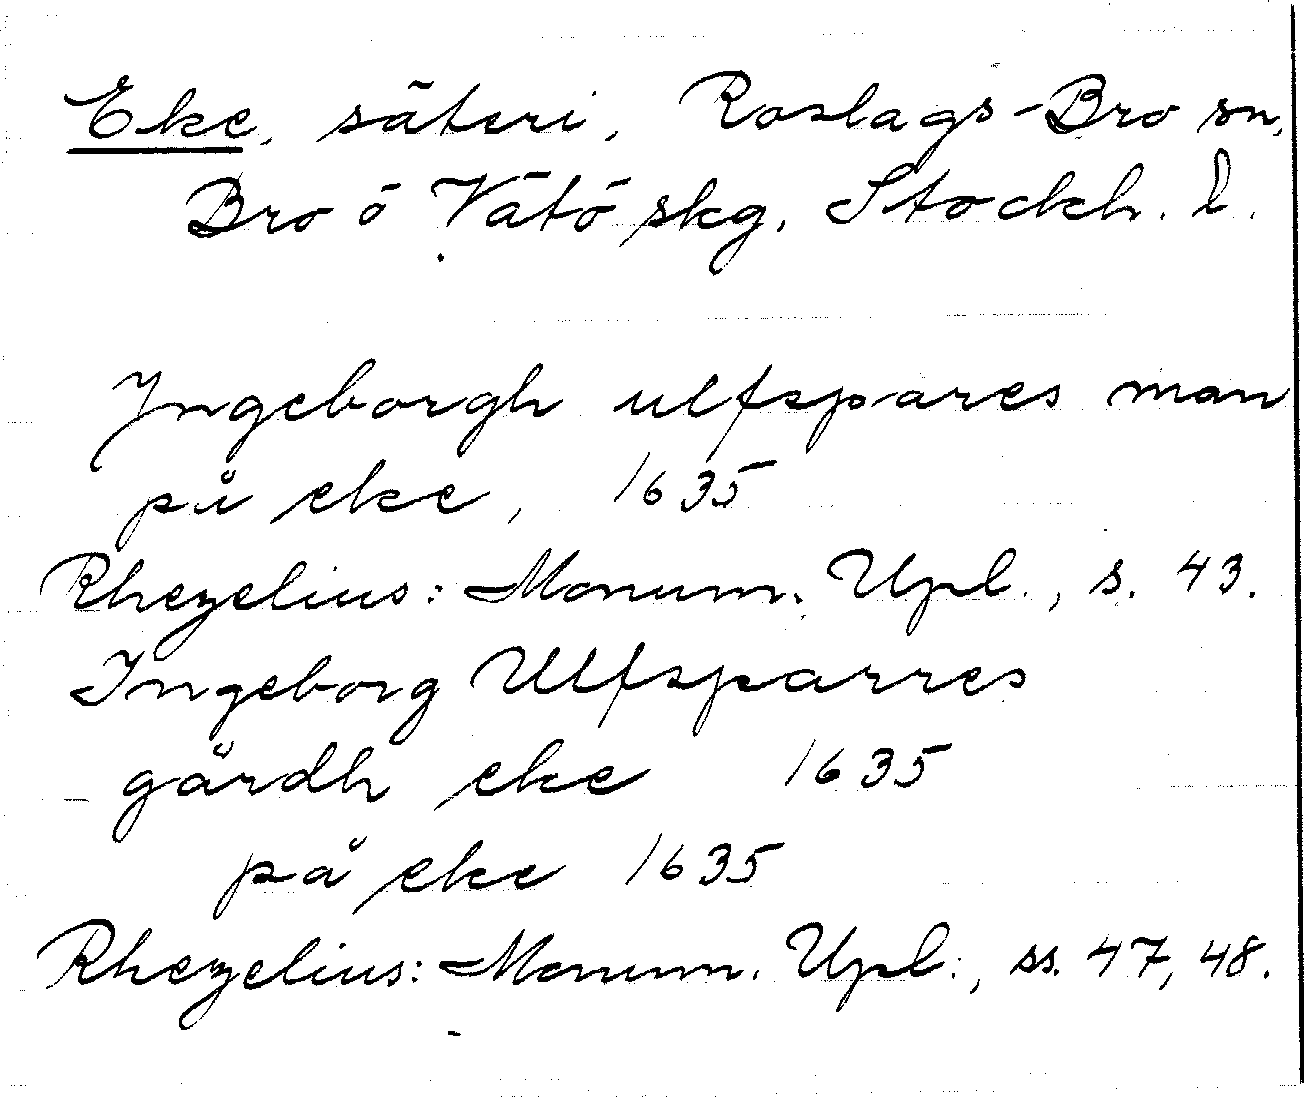 Eke, säteri, Roslags-Bro sn,
Bro o Vätö skg, Stockh. l.
Ingeborgh ulfspares man
på eke, 1635
Rhezelius: Monum. Upl., s. 43.
Ingeborg Ulfsparres
gårdh eke 1635
på eke 1635
Rhezelius: Monum. Upl., ss. 47, 48.